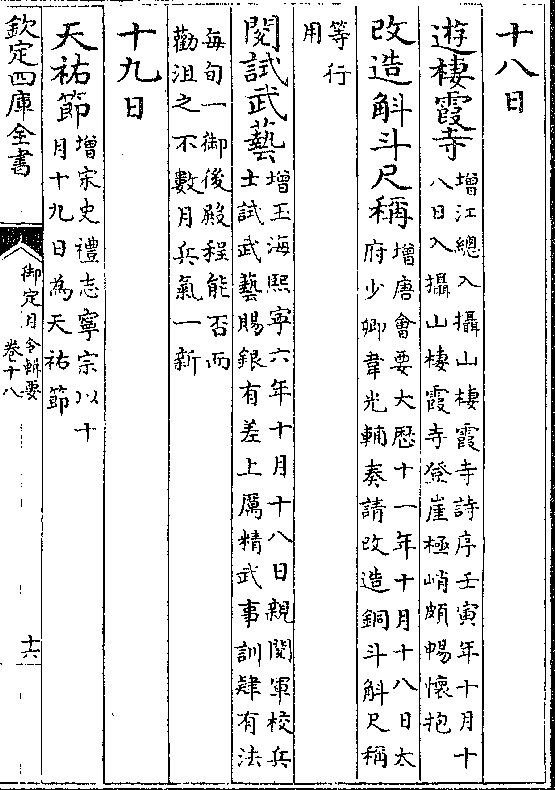 十八日
遊棲霞寺
增江總入攝山棲霞寺詩序壬寅年十月十
八日入攝山棲霞寺登崖極峭頗暢懷抱
改造斛斗尺稱
增唐會要大厯十一年十月十八日太
府少卿韋光輔奏請改造銅斗斛尺稱
等行
用
閱試武藝
增玉海熙寧六年十月十八日親閱軍校兵
士試武藝賜銀有差上厲精武事訓肄有法
每旬一御後殿程能否而
勸沮之不數月兵氣一新
十九日
天祐節
增宋史禮志寧宗以十
月十九日為天祐節
欽定四庫全書
御定月令輯要
卷十八
十六